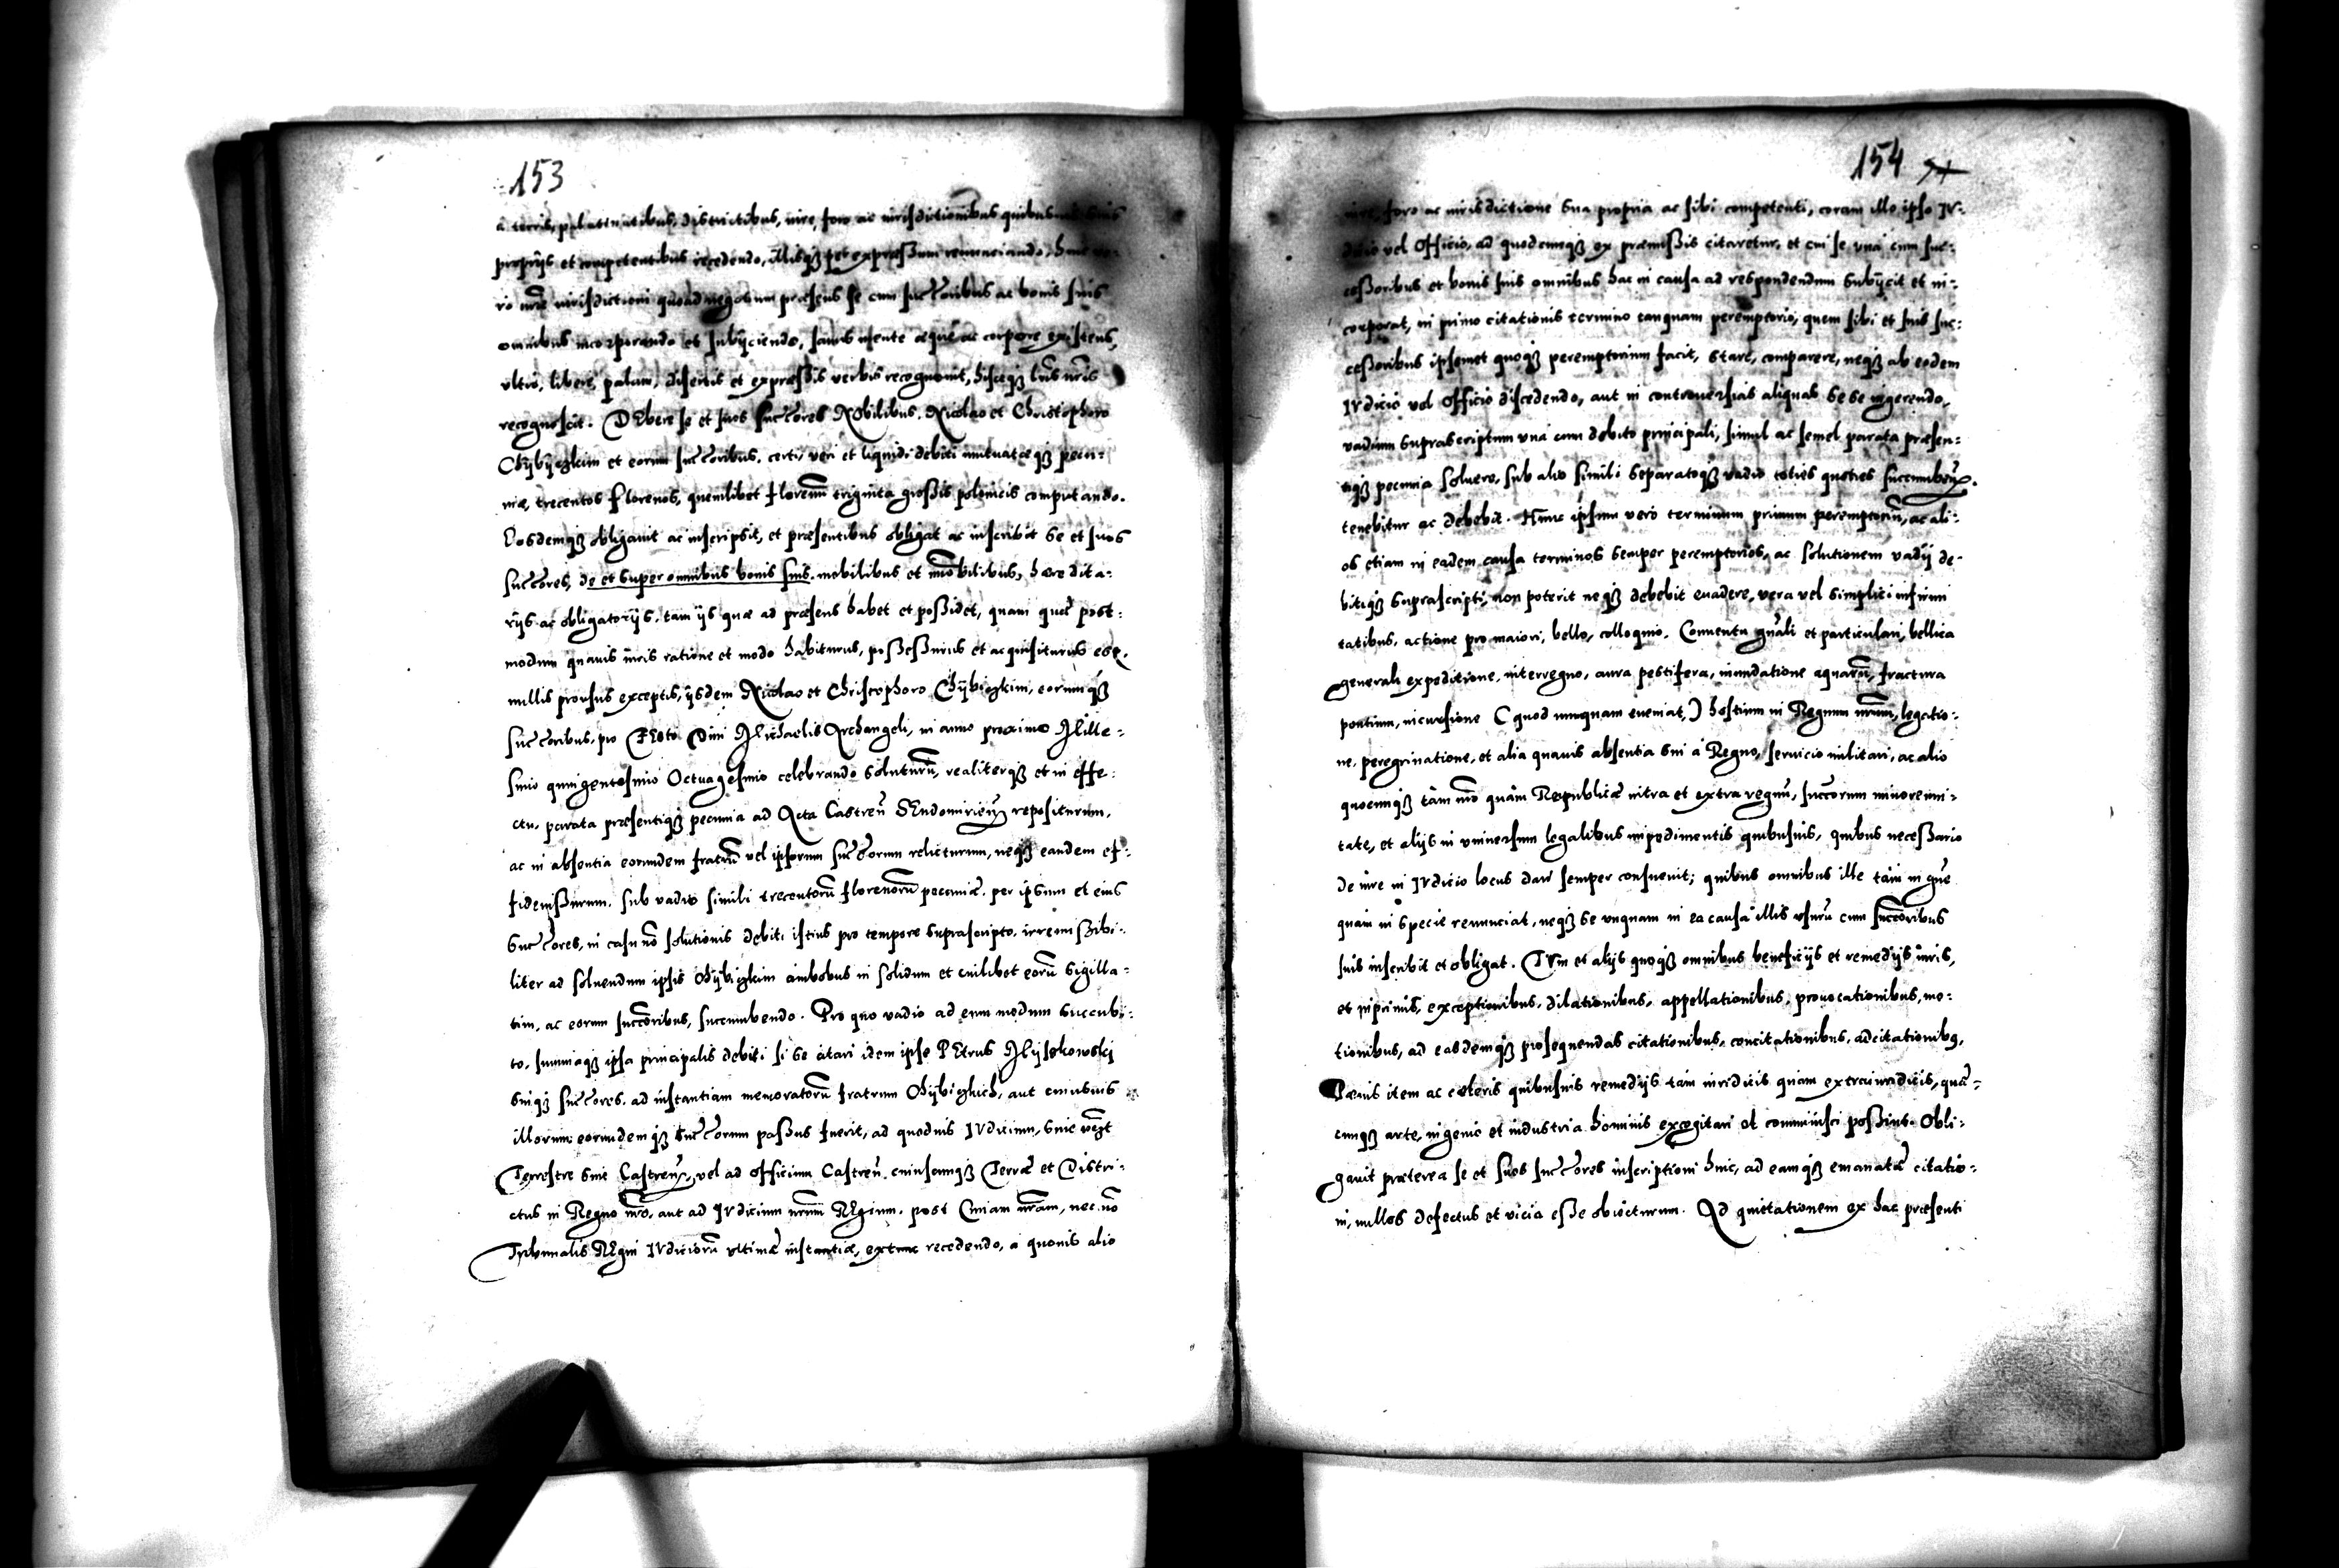 153
a terris, palatinatibus, districtibus, iure, foro ac iurisdictionibus quibusuis suis
proprijs et competentibus recedendo, illisq3 per expressum renunciando, huic ve-
ro nrae iurisdictioni quoad negotium praesens se cum succoribus ac bonis suis
omnibus incorporando et subijciendo, sanus mente aeque ac corpore existens,
vltro, libere, palam, disertis et expressis verbis recognouit, hisceq3 lris nris
recognoscit. Debere se et suos succores Nobilibus, Nicolao et Christophoro
Chÿbÿczkim et eorum succoribus, certi, veri et liquidi debiti mutuataeq3 pecu-
niae, trecentos florenos, quemlibet florenum triginta grossis polonicis computando.
Eosdemq3 obligauit ac inscripsit, et praesentibus obligat ac inscribit se et suos
succores, de et super omnibus bonis suis, mobilibus et imobilibus, haeredita-
rijs ac obligatorijs, tam ijs quae ad praesens habet et possidet, quam quae post-
modum quauis iuris ratione et modo habiturus, possessurus et acquisiturus est,
nullis prorsus exceptis, ijsdem Nicolao et Christophoro Chÿbiczkim, eorumq3
succoribus, pro Festo Diui Michaelis Archangeli, in anno proximo Mille-
simo quingentesimo Octuagesimo celebrando soluturu, realiterq3 et in effe-
ctu, parata praesentiq3 pecunia ad Acta Castren Sendomirien repositurum,
ac in absentia eorundem fratru vel ipsorum succorum relicturum, neq3 eandem ef-
fidemssurum, sub vadio simili trecentoru florenoru pecuniae, per ipsum et eius
succores, in casu no solutionis debiti istius pro tempore suprascripto, irremissibi-
liter ad soluendum ipsis Chÿbiczkim ambobus in solidum et cuilibet eoru sigilla-
tim, ac eorum succoribus, succumbendo. Pro quo vadio ad eum modum succubi-
to, summaq3 ipsa principalis debiti si se citari idem ipse Petrus Mÿskowskj
suiq3 succores, ad instantiam memoratoru fratrum Chÿbiczkich, aut cuiusuis
illorum eorundemq3 succorum passus fuerit, ad quoduis Iudicium, siue
Terrestre siue Castren, vel ad officium Castren, cuiuscunq3 Terrae et Distri-
ctus in Regno nro, aut ad Iudicium nrum Regium, post Curiam nram, nec no
Tribunalis Regni Iudicioru vltimae instantiae, extunc recedendo, a quouis alio
154
iure, foro ac iurisdictione sua propria ac sibi competenti, coram illo ipso Iu-
dicio vel Officio, ad quodcunq3 ex praemissis citaretur, et cui se vna cum suc-
cessoribus et bonis suis omnibus hac in causa ad respondendum subijcit et in-
corporat, in primo citationis termino tanquam peremptorio, quem sibi et suis suc-
cessoribus ipsemet quoq3 peremptorium facit, stare, comparere, neq3 ab eodem
Iudicio vel Officio discedendo, aut in controuersias aliquas sese ingerendo,
vadium suprascriptum vna cum debito principali, simul ac semel parata praesen-
tiq3 pecunia soluere, sub alio simili separatoq3 vadio toties quoties succumben.
tenebitur ac debebit. Hunc ipsum vero terminum primum peremptoriu, ac ali-
os etiam in eadem causa terminos semper peremptorios, ac solutionem vadij de-
bitiq3 suprascripti, non poterit neq3 debebit euadere, vera vel simplici infirmi
tatibus, actione pro maiori, bello, colloquio, Conuentu gnali et particulari, bellica
generali expeditione, interregno, aura pestifera, inundatione aquaru, fractura
pontium, incursione (quod nunquam eueniat,) hostium in Regnum nrum, legatio-
ne, peregrinatione, et alia quauis absentia sui a Regno, seruicio militari, ac alio
quocunq3 tam nro quam Reipublicae intra et extra regnu, succorum minorenni-
tate, et alijs in vniuersum legalibus impedimentis quibusuis, quibus necessario
de iure in Iudicio locus dari semper consueuit; quibus omnibus ille tam in gne
quam in specie renunciat, neq3 se vnquam in ea causa illis vsuru cum succoribus
suis inscribit et obligat. Tum et alijs quoq3 omnibus beneficijs et remedijs iuris,
et inprimis, exceptionibus, dilationibus, appellationibus, prouocationibus, mo-
tionibus, ad easdemq3 prosequendas citationibus, concitationibus, adcitationibq,
Paenis item ac caeteris quibusuis remedijs tam iuridicis quam extraiuridicis, quae-
cunq3 arte, ingenio et industria hominis excogitari et comminisci possint. Obli-
gauit praeterea se et suos succores inscriptioni huic, ad eamq3 emanatae citatio-
ni, nullos defectus et vicia esse obiecturum. Ad quittationem ex hac praesenti